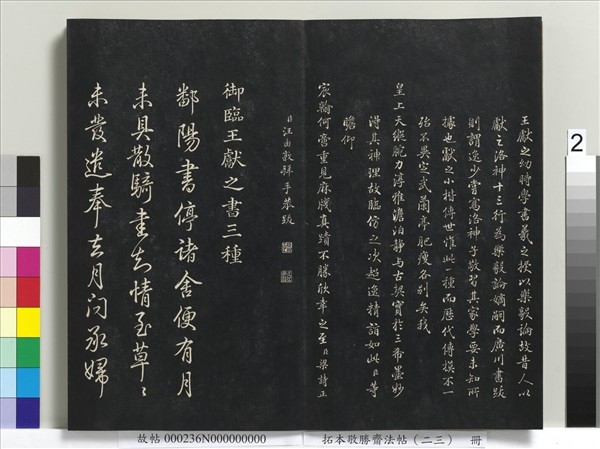 王獻之幼時學書羲之授以樂毅論故昔人以
獻之洛神十三行為樂毅論嫡嗣而廣川書跋
則謂逸少嘗寫洛神子敬習其家學要未知所
據也獻之小楷傳世惟此一種而歷代傳模不一
殆不異定武蘭亭肥瘦各別矣我
皇上天縱腕力淳雅澹泊靜與古契寶於三希墨妙
得其神理故臨仿之沙超逸精詣如此臣等
瞻仰
宸翰何啻重見麻牋真蹟不勝欣幸之至臣梁詩正
臣汪由敦拜手恭跋
御臨王獻之書三種
鄱陽書停諸舍便有月
未具散騎書知情至草〻
未發遣奉去月問承婦
2
故帖 000236N000000000
拓本敬勝齋法帖（二三） 冊